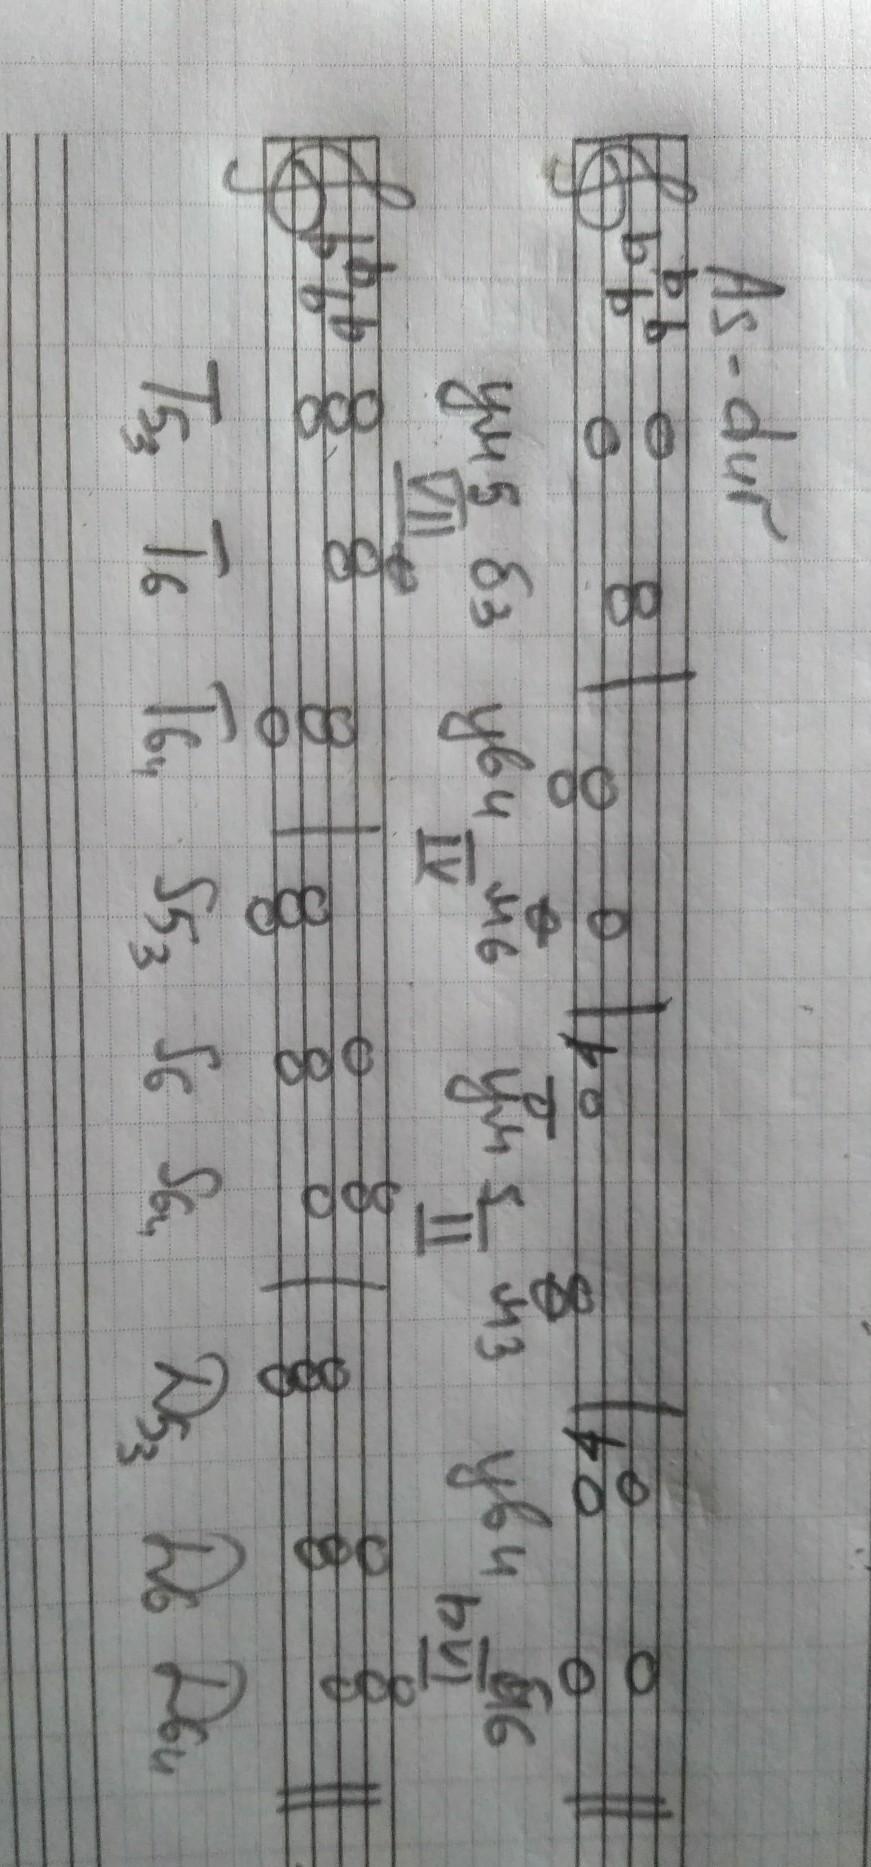 As-dur
ум5 б3 ув4 м6 ум5 м3 ув4 б6
VII IV II VI
T53 T6 T64 S53 S6 S64 D53 D6 D64